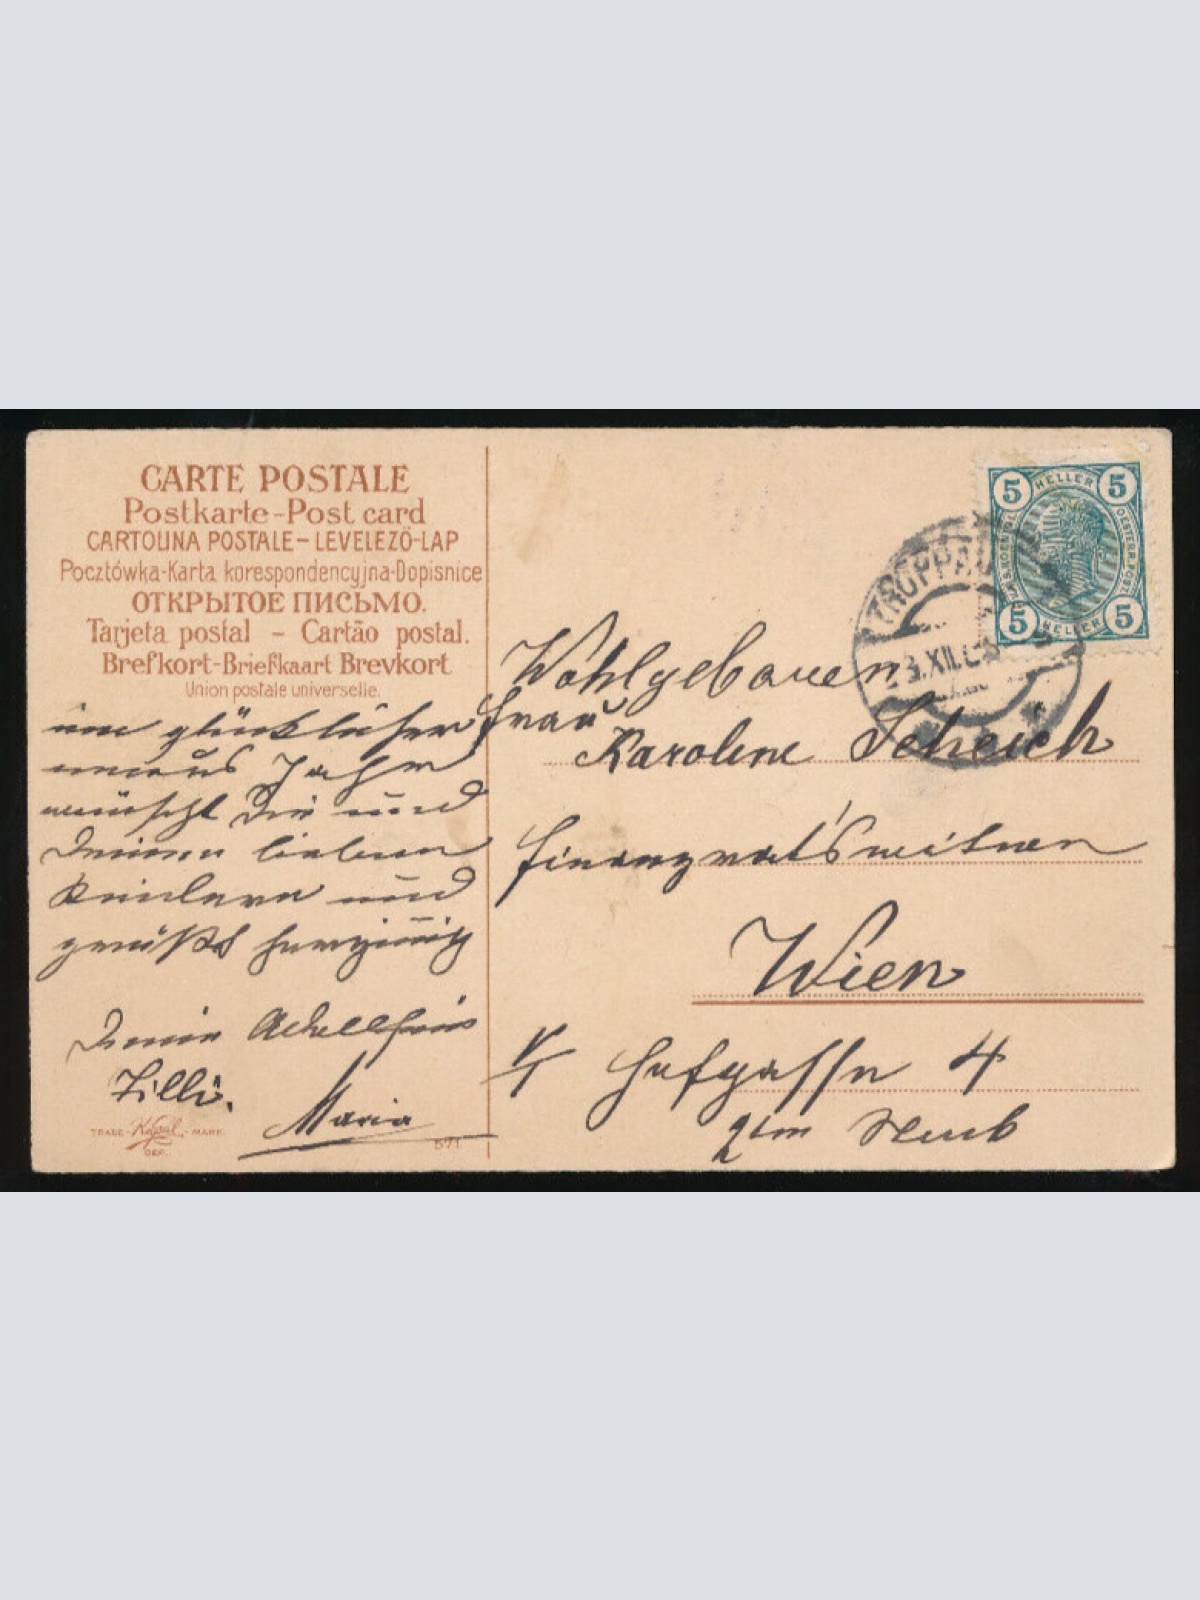 CARTE POSTALE
Postkarte-Post card
CARTOLINA POSTALE-LEVELEZŐ-LAP
Pocztówka-Karta korespondencyjna-Dopisnice
ОТКРЫТОЕ ПИСЬМО.
Tarjeta postal - Cartão postal.
Brefkort-Briefkaart Brevkort
Union postale universelle.
ein glückliches
neues Jahr
wünscht Dir und
Deinen lieben
Kindern und
grüßt herzinnig
Deine
Tilli.
Maria
TRADE - MARK
DEP.
571
5 HELLER 5
5 HELLER 5
TROPPAU
XII.
Wohlgeboren
Frau
Karoline Scheich
Finanzratswitwe
Wien
Hofgasse 4
2ten Stock